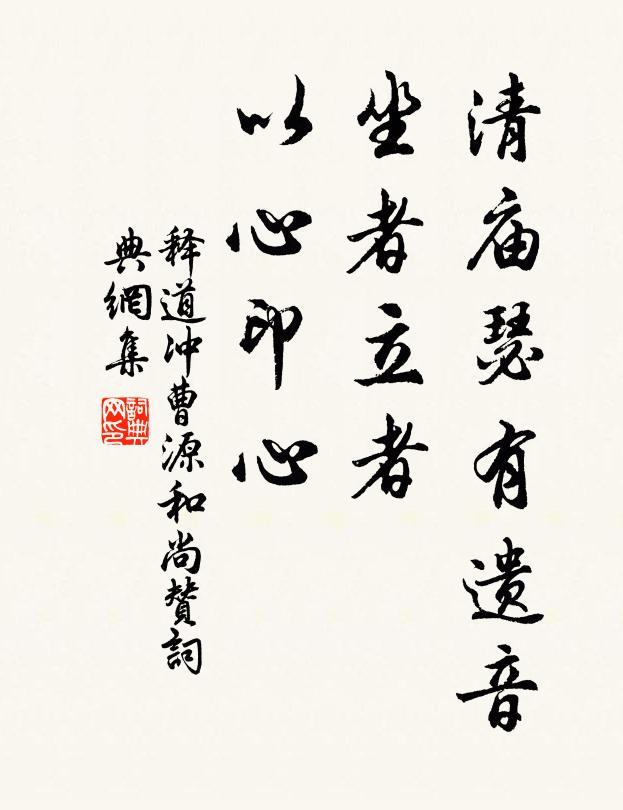 清庙瑟有遗音
坐者立者
以心印心
释道冲曹源和尚赞詞
典網集
詞典
网印